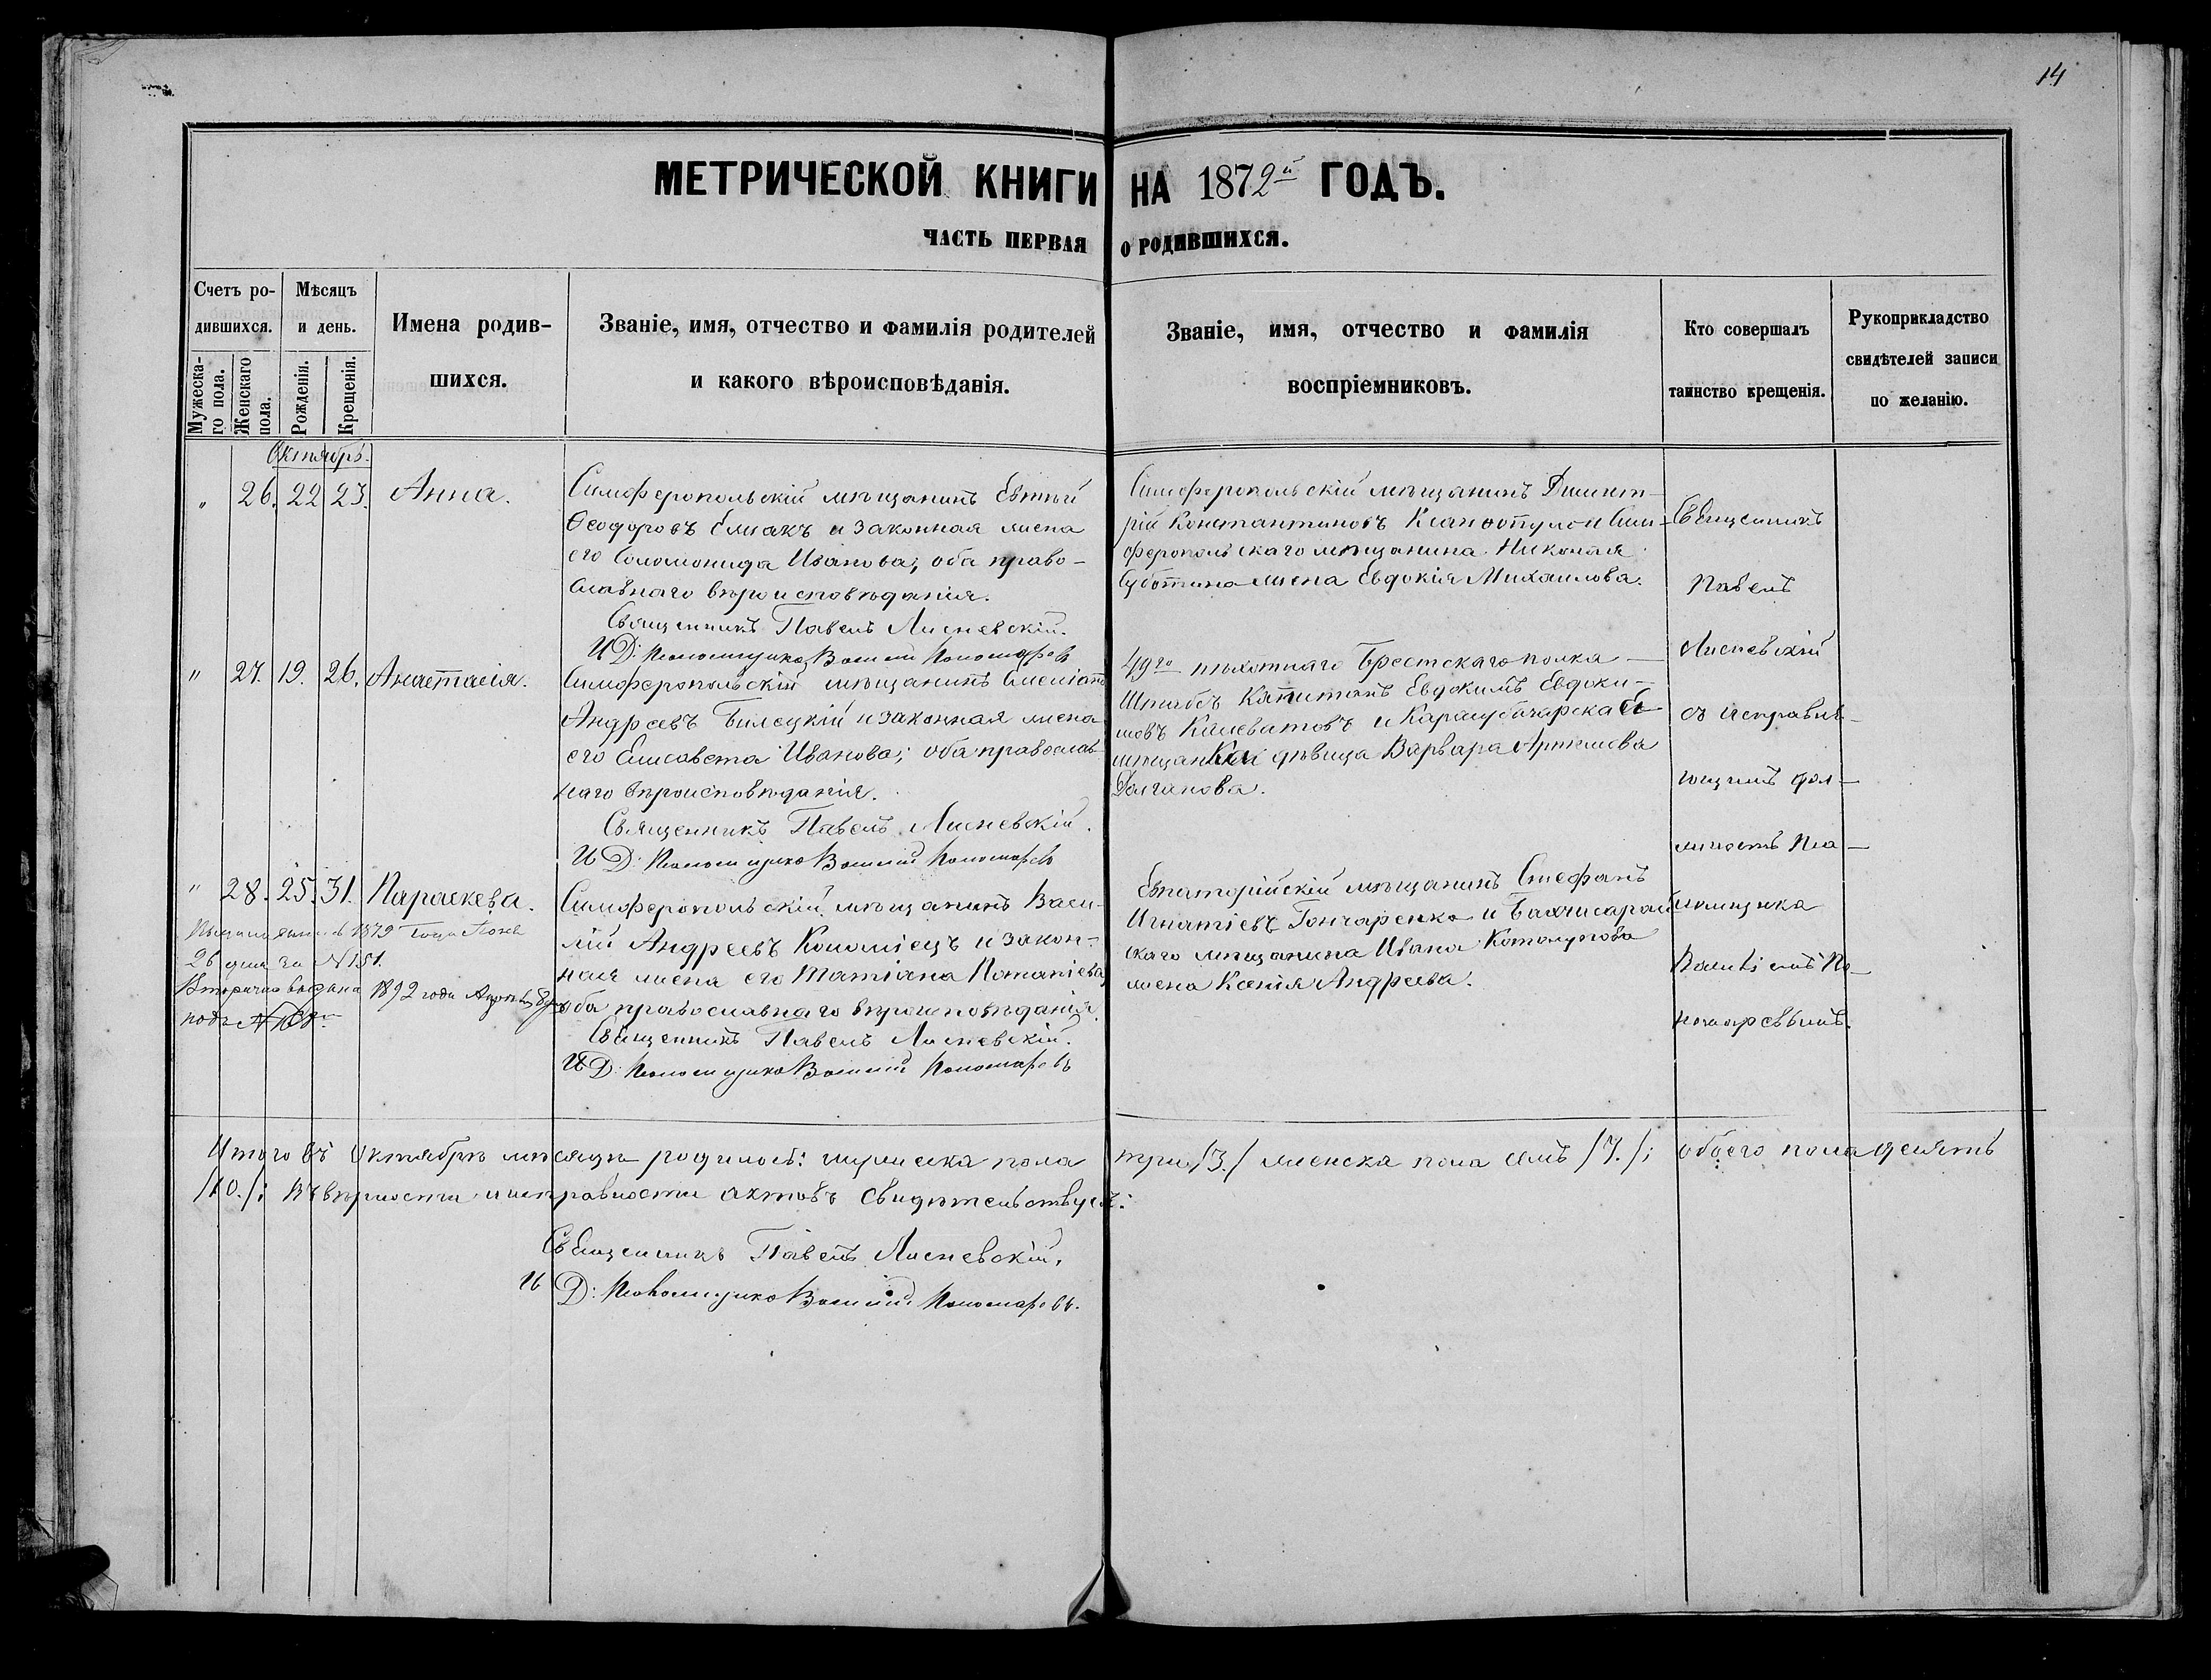 14
МЕТРИЧЕСКОЙ КНИГИ НА 1872й ГОДЪ.
ЧАСТЬ ПЕРВАЯ О РОДИВШИХСЯ.
Счетъ родившихся.
Мужескаго пола.
Женскаго пола.
Мѣсяцъ и день.
Рожденія.
Крещенія.
Имена родившихся.
Званіе, имя, отчество и фамилія родителей
и какого вѣроисповѣданія.
Званіе, имя, отчество и фамилія
воспріемниковъ.
Кто совершалъ
таинство крещенія.
Рукоприкладство
свидѣтелей записи
по желанію.
Октябрь.
" 26. 22 23. Анна.
Симферопольскій мѣщанинъ
Ѳеодоровъ Елмакъ и законная жена
его Соломонида Иванова; оба право-
славнаго вѣроисповѣданія.
Священникъ Павелъ Лисневскій.
И Д: Псаломщика Василій Пономаревъ
Симферопольскій мѣщанинъ Димит-
рій Константиновъ и Сим-
феропольскаго мѣщанина Николая
Суботина жена Евдокія Михаилова.
" 27. 19. 26. Анастасія.
Симферопольскій мѣщанинъ
Андреевъ Билецкій и законная жена
его Елисавета Иванова; оба православ-
наго вѣроисповѣданія.
Священникъ Павелъ Лисневскій.
И Д: Псаломщика Василій Пономаревъ
49го пѣхотнаго Брестскаго полка
Штабсъ Капитанъ Евдокимъ Евдоки-
мовъ и
дѣвица Варвара Артемова
Долганова.
" 28. 25. 31. Параскева.
1879 года
26 дня за № 151.
Вторично выдана 1892 года
подъ №
Симферопольскій мѣщанинъ Васи-
лій Андреевъ Коломіецъ и закон-
ная жена его Татіана Потапіева,
оба православнаго вѣроисповѣданія.
Священникъ Павелъ Лисневскій.
И Д: Псаломщика Василій Пономаревъ
Евпаторійскій мѣщанинъ Стефанъ
Игнатіевъ Гончаренко и Бахчисарай-
скаго мѣщанина Ивана
жена Ксенія Андреева.
Священникъ
Павелъ
Лисневскій
съ исправля-
ющимъ дол-
жность Пса-
ломщика
Василіемъ По-
номаревымъ.
Итого въ Октябрѣ мѣсяцѣ родилось: мужеска пола три /3./ женска пола семь /7./; обоего пола десять
/10./; Въ вѣрности и исправности актовъ свидѣтельствуемъ:
Священникъ Павелъ Лисневскій.
И Д: Псаломщика Василій Пономаревъ.